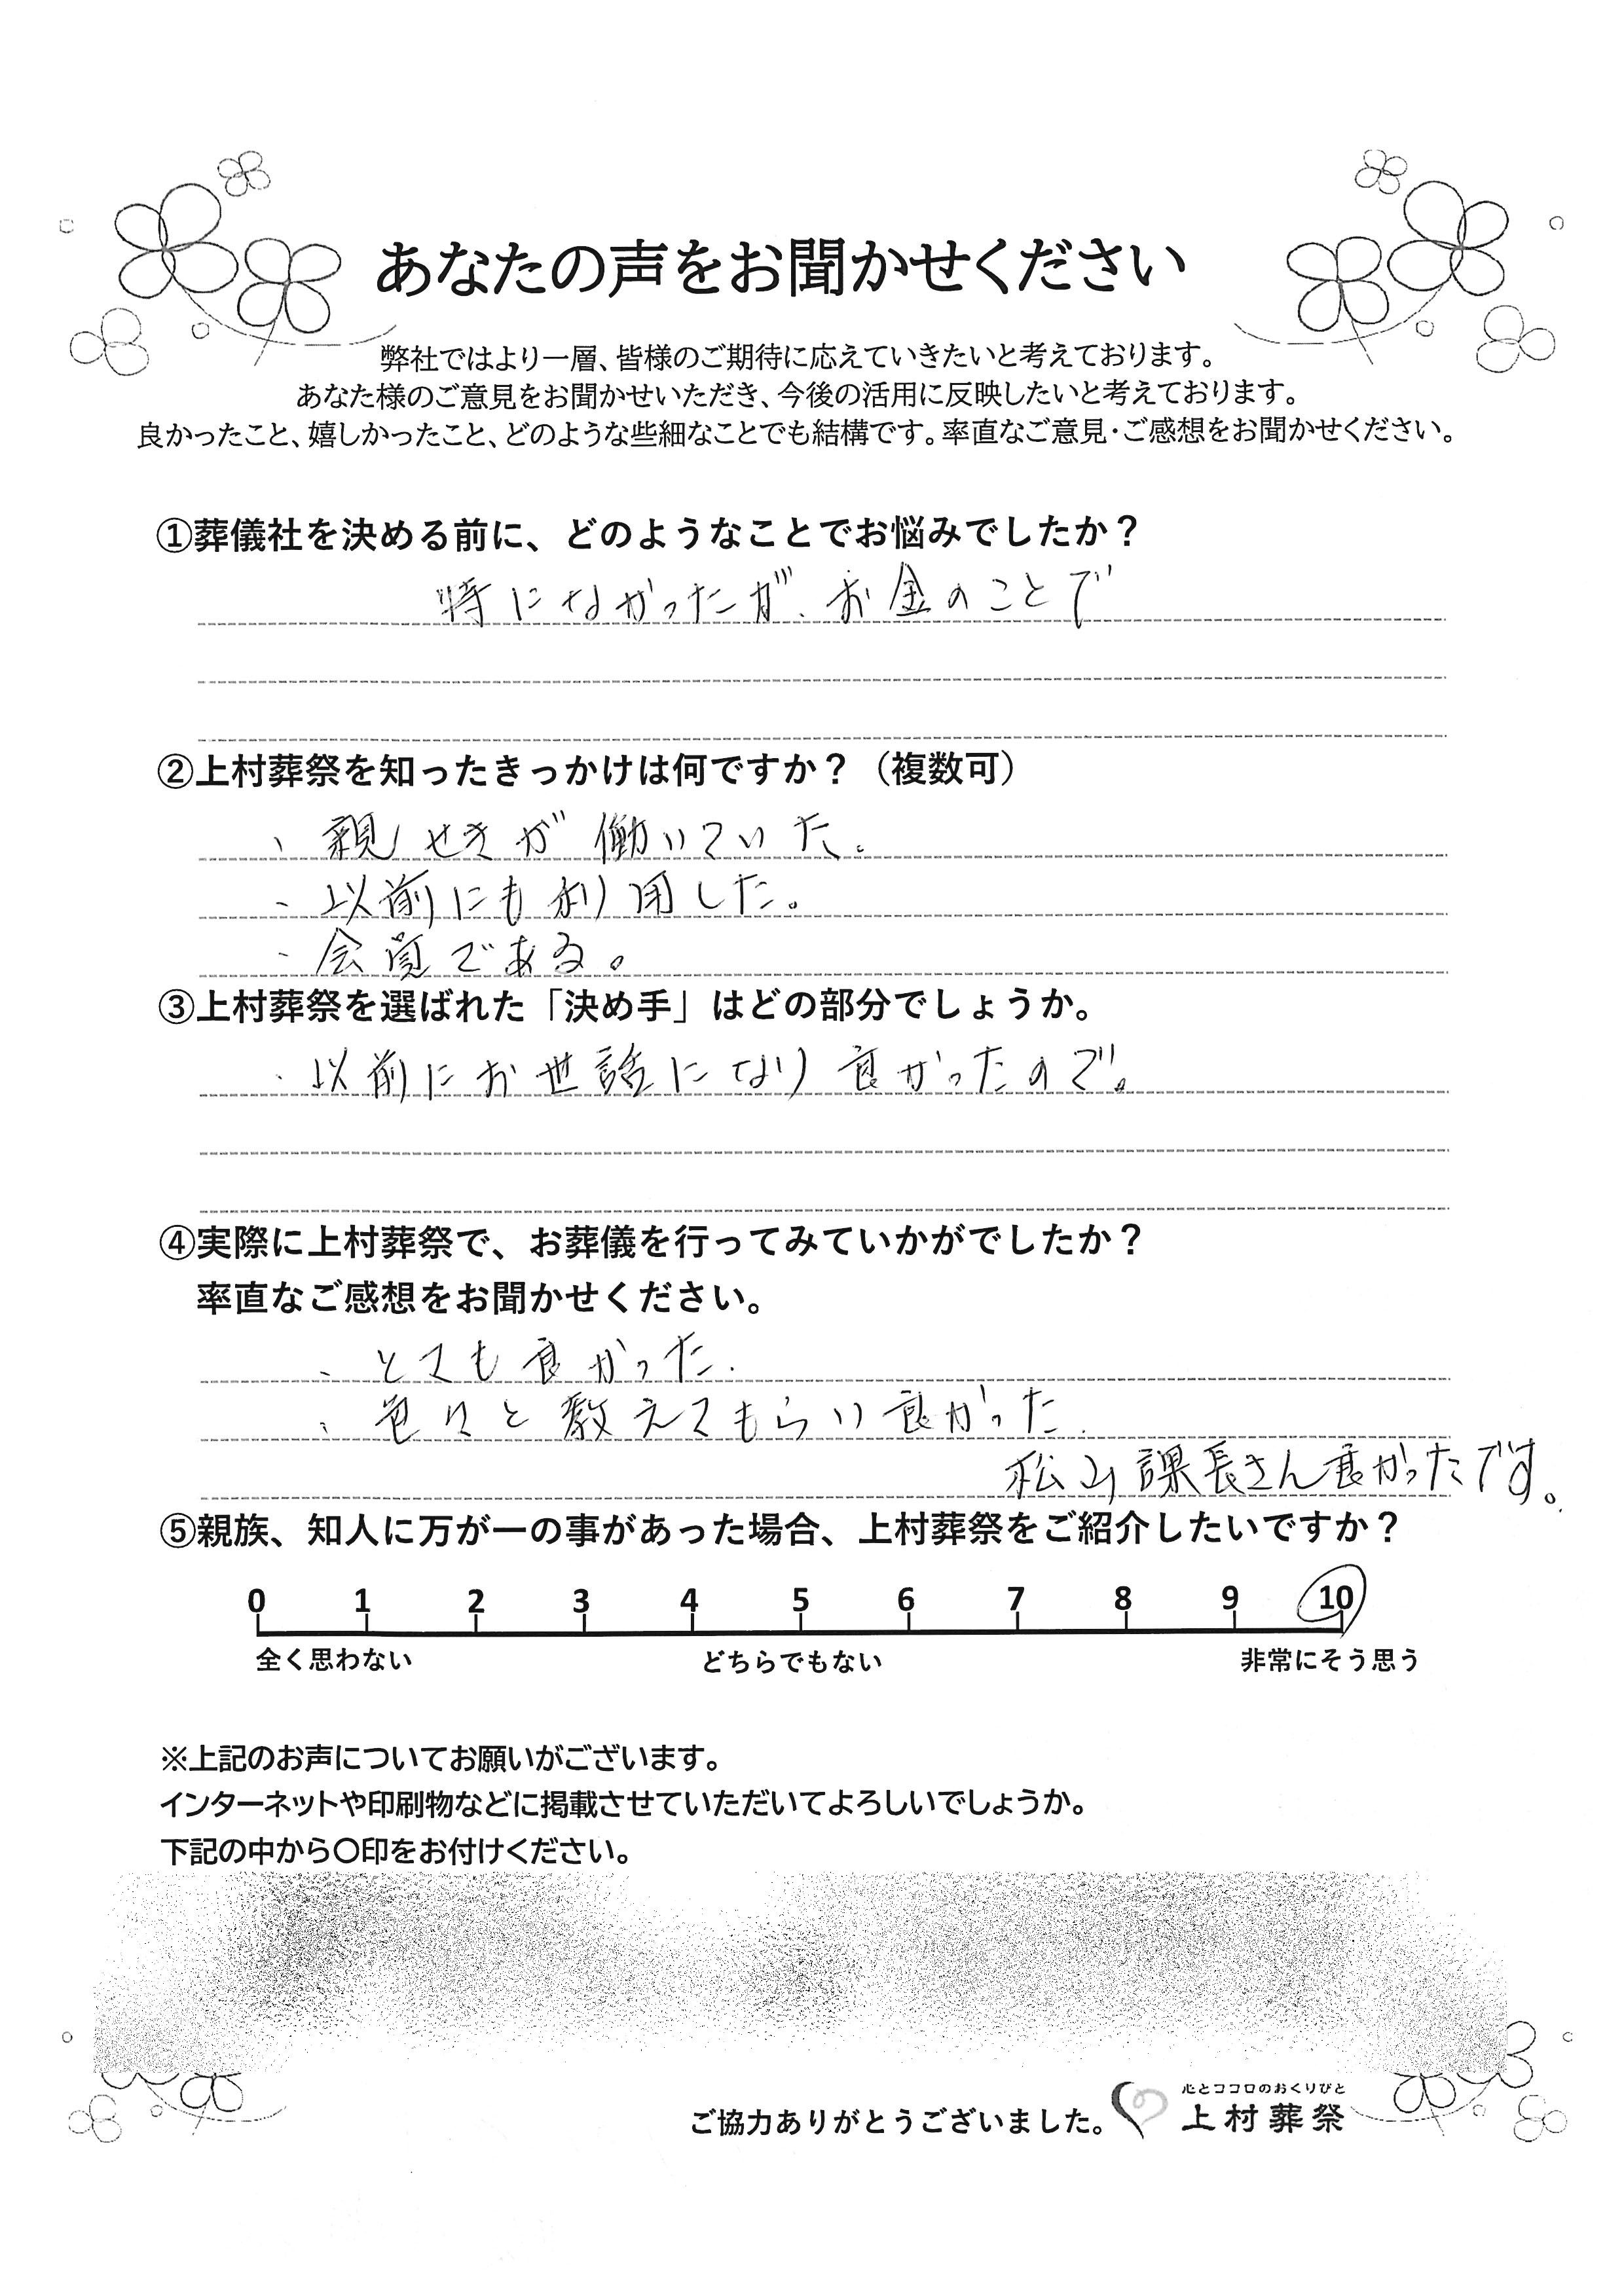 あなたの声をお聞かせください
弊社ではより一層、皆様のご期待に応えていきたいと考えております。
あなた様のご意見をお聞かせいただき、今後の活用に反映したいと考えております。
良かったこと、嬉しかったこと、どのような些細なことでも結構です。率直なご意見・ご感想をお聞かせください。
①葬儀社を決める前に、どのようなことでお悩みでしたか？
特になかったが、お金のことで
②上村葬祭を知ったきっかけは何ですか？（複数可）
、親せきが働いていた。
・以前にも利用した。
・会員である。
③上村葬祭を選ばれた「決め手」はどの部分でしょうか。
・以前にお世話になり良かったので。
④実際に上村葬祭で、お葬儀を行ってみていかがでしたか？
率直なご感想をお聞かせください。
、とても良かった.
、色々と教えてもらい良かった.
松山課長さん良かったです。
⑤親族、知人に万が一の事があった場合、上村葬祭をご紹介したいですか？
0 1 2 3 4 5 6 7 8 9 10
全く思わない どちらでもない 非常にそう思う
※上記のお声についてお願いがございます。
インターネットや印刷物などに掲載させていただいてよろしいでしょうか。
下記の中から〇印をお付けください。
心とココロのおくりびと
ご協力ありがとうございました。 上村葬祭